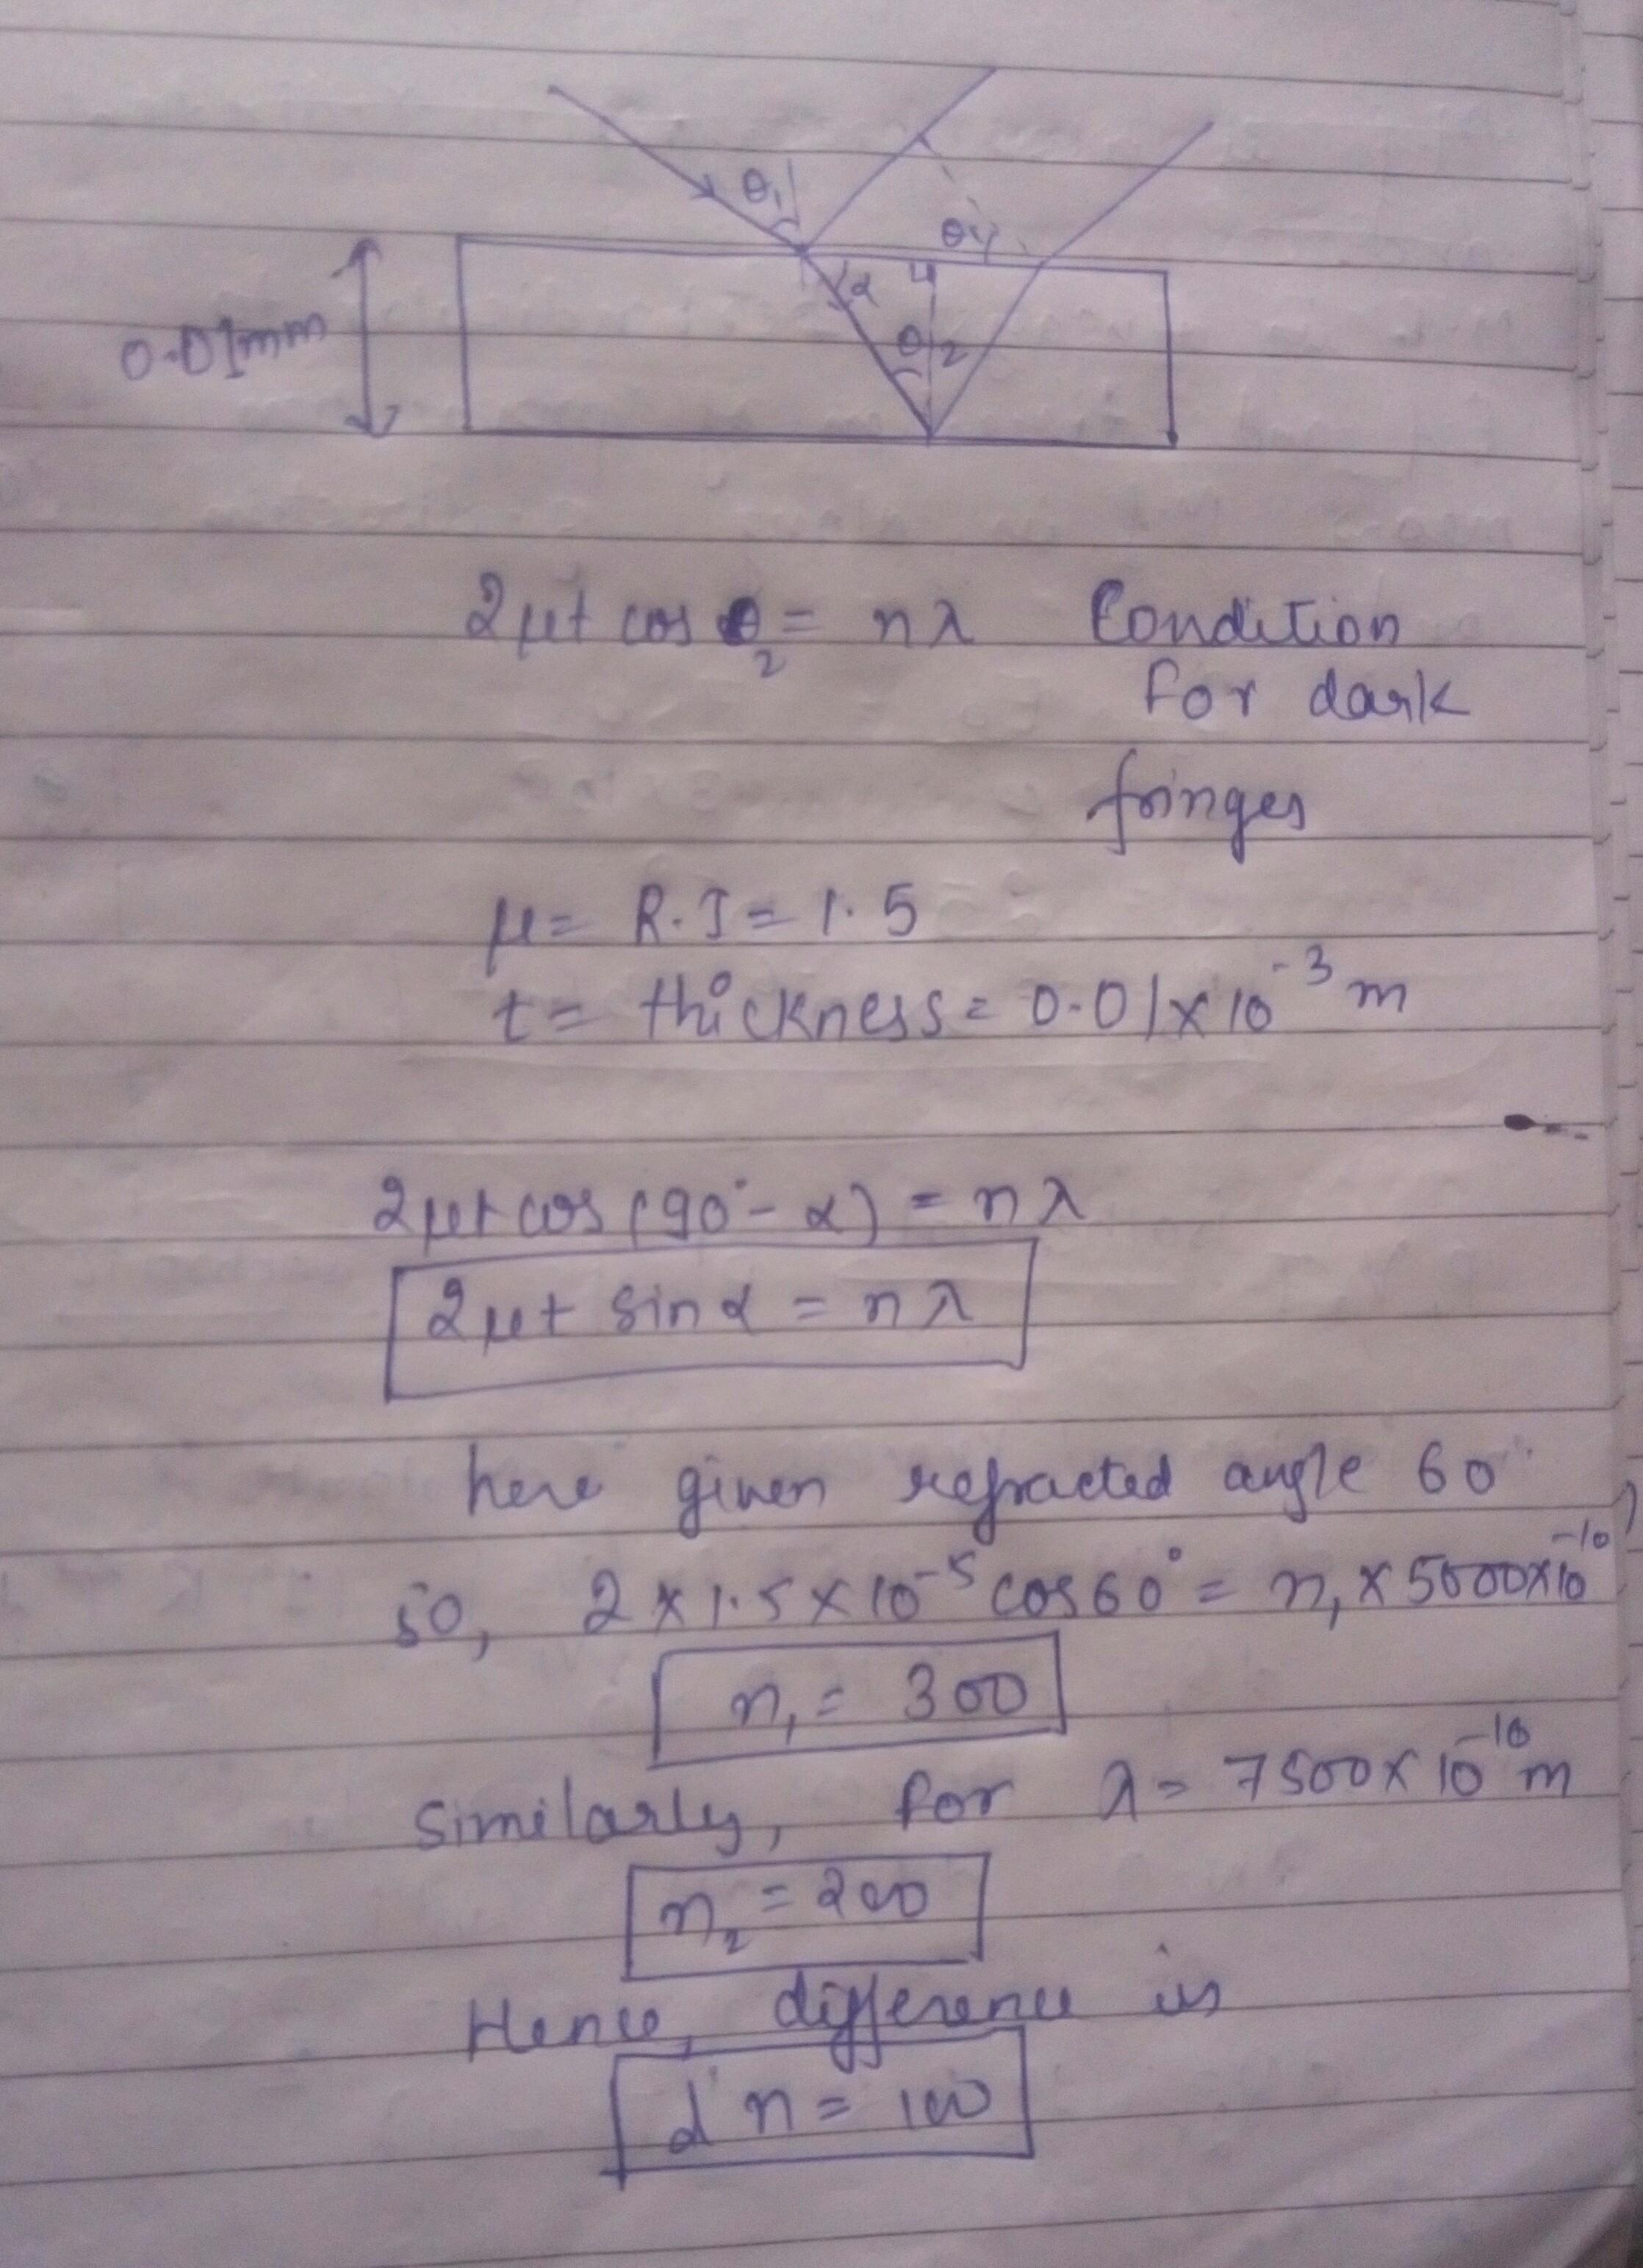 θ₁
θ₄
α
0.01mm
θ₂
2μt cos θ₂ = nλ Condition
for dark
fringes
μ = R.I = 1.5
t = thickness = 0.01×10⁻³ m
2μt cos (90° - α) = nλ
2μt sin α = nλ
here given refracted angle 60°
so, 2×1.5×10⁻⁵ cos60° = n₁×5000×10⁻¹⁰
n₁ = 300
Similarly, for λ = 7500×10⁻¹⁰ m
n₂ = 200
Hence, difference is
dn = 100